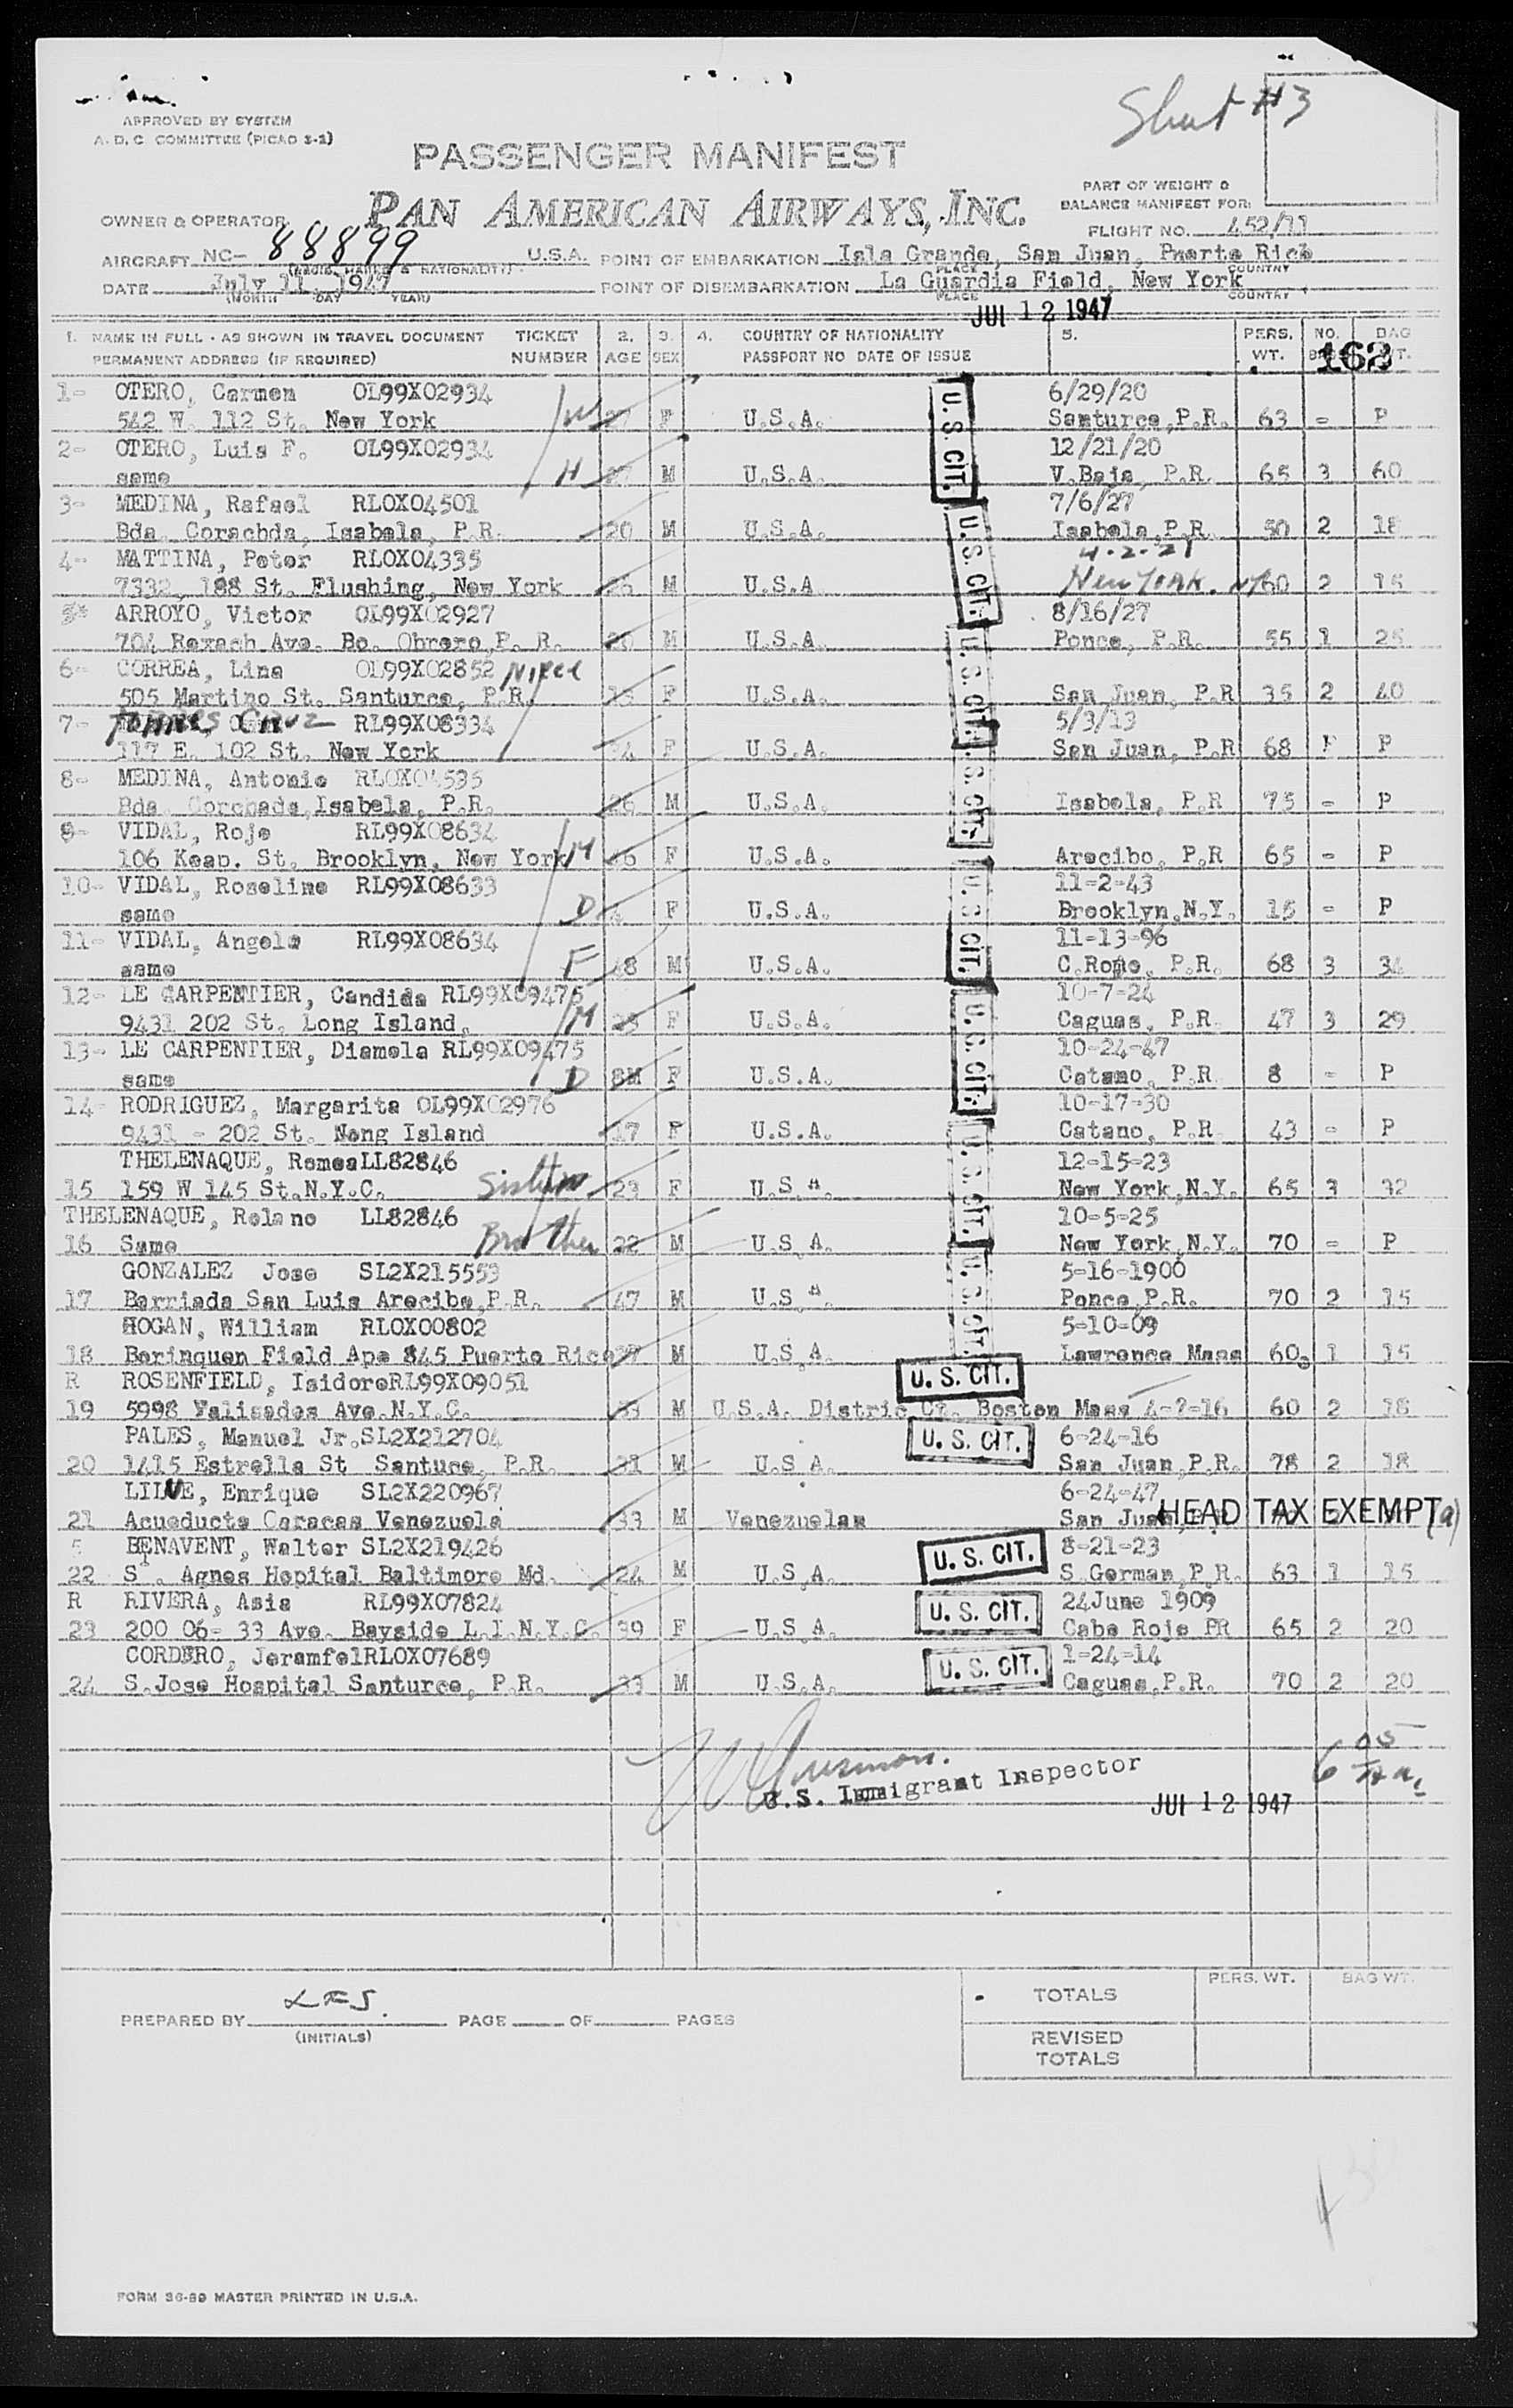 Sheet #3
APPROVED BY SYSTEM
A.D.C COMMITTEE (PICAO 3-2)
PASSENGER MANIFEST
PAN AMERICAN AIRWAYS, INC.
PART OF WEIGHT &
BALANCE MANIFEST FOR:
OWNER & OPERATOR
FLIGHT NO. 452/11
AIRCRAFT NC- 88899 U.S.A. POINT OF EMBARKATION Isla Grande, San Juan, Puerto Rico
PLACE COUNTRY
DATE July 11, 1947 POINT OF DISEMBARKATION La Guardia Field, New York
(MONTH DAY YEAR) PLACE COUNTRY
JUL 12 1947
1. NAME IN FULL - AS SHOWN IN TRAVEL DOCUMENT TICKET 2. 3. 4. COUNTRY OF NATIONALITY 5. PERS. NO. BAG
PERMANENT ADDRESS (IF REQUIRED) NUMBER AGE SEX PASSPORT NO DATE OF ISSUE WT. WT.
162
1- OTERO, Carmen OL99X02934 6/29/20
542 W. 112 St. New York W 27 F U.S.A. U.S. CIT. Santurce,P.R. 63 - P
2- OTERO, Luis F. OL99X02934 12/21/20
same H 27 M U.S.A. V.Baja, P.R. 65 3 60
3- MEDINA, Rafael RLOX04501 7/6/27
Bda. Corachda, Isabela, P.R. 20 M U.S.A. U.S. CIT. Isabela,P.R. 50 2 18
4- MATTINA, Peter RLOX04335 4.2.21
7332, 188 St. Flushing, New York 26 M U.S.A New York. NY 60 2 15
ARROYO, Victor OL99X02927 8/16/27
704 Rexach Ave. Bo. Obrero,P. R. 20 M U.S.A. U.S. CIT. Ponce, P.R. 55 1 25
6- CORREA, Lina OL99X02852 Niece
505 Martino St. Santurce, P.R. 13 F U.S.A. San Juan, P.R 35 2 40
7- Torres Cruz RL99X08334 5/3/13
117 E. 102 St. New York 34 F U.S.A. U.S. CIT. San Juan, P.R 68 P P
8- MEDINA, Antonio RLOX04535
Bda. Corchada,Isabela, P.R. 26 M U.S.A. Isabela, P.R 75 - P
9- VIDAL, Roja RL99X08634
106 Keap. St. Brooklyn, New York M 36 F U.S.A. U.S. CIT. Arecibo, P.R 65 - P
10- VIDAL, Roseline RL99X08633 11-2-43
same D 4 F U.S.A. Brooklyn,N.Y. 15 - P
11- VIDAL, Angela RL99X08634 11-13-96
same F 48 M U.S.A. C.Romo, P.R. 68 3 34
12- LE CARPENTIER, Candida RL99X09475 10-7-24
9431 202 St. Long Island, M 23 F U.S.A. U.S. CIT. Caguas, P.R. 47 3 29
13- LE CARPENTIER, Diamela RL99X09475 10-24-47
same D 8M F U.S.A. Catano, P.R 8 - P
14- RODRIGUEZ, Margarita OL99X02976 10-17-30
9431 - 202 St. Nong Island 17 F U.S.A. U.S. CIT. Catano, P.R 43 - P
THELENAQUE, RomeaLL82846 12-15-23
15 159 W 145 St.N.Y.C. Sister 23 F U.S. New York,N.Y. 65 3 32
THELENAQUE, Rolano LL82846 10-5-25
16 Same Brother 22 M U.S.A. New York,N.Y. 70 - P
GONZALEZ Jose SL2X215553 5-16-1900
17 Barriada San Luis Arecibo,P.R. 47 M U.S U.S. CIT. Ponce,P.R. 70 2 15
HOGAN, William RLOX00802 5-10-09
18 Borinquen Field Apo 845 Puerto Rico 37 M U.S.A. Lawrence Mass 60 1 15
R ROSENFIELD, IsidoreRL99X09051 U. S. CIT.
19 5998 Valisades Ave.N.Y.C. 53 M U.S.A. Distric Ct. Boston Mass 4-7-16 60 2 18
PALES, Manuel Jr.SL2X212704 U. S. CIT. 6-24-16
20 1415 Estrella St Santuce, P.R. 31 M U.S.A. San Juan,P.R. 78 2 18
LILUE, Enrique SL2X220967 6-24-47
21 Acueducto Caracas Venezuela 33 M Venezuelan San Juan HEAD TAX EXEMPT (a)
BENAVENT, Walter SL2X219426 U. S. CIT. 8-21-23
22 St. Agnes Hopital Baltimore Md. 24 M U.S.A. S.German,P.R. 63 1 15
R RIVERA, Asia RL99X07824 U. S. CIT. 24June 1909
23 200 06- 33 Ave. Bayside L.I.N.Y.C. 39 F U.S.A. Cabo Rojo PR 65 2 20
CORDERO, JeramfelRLOX07689 U. S. CIT. 1-24-14
24 S.Jose Hospital Santurce, P.R. 33 M U.S.A. Caguas,P.R. 70 2 20
U.S. Immigrant Inspector
JUL 12 1947
PERS. WT. BAG WT.
TOTALS
PREPARED BY LFS. PAGE OF PAGES
(INITIALS)
REVISED
TOTALS
FORM 36-89 MASTER PRINTED IN U.S.A.